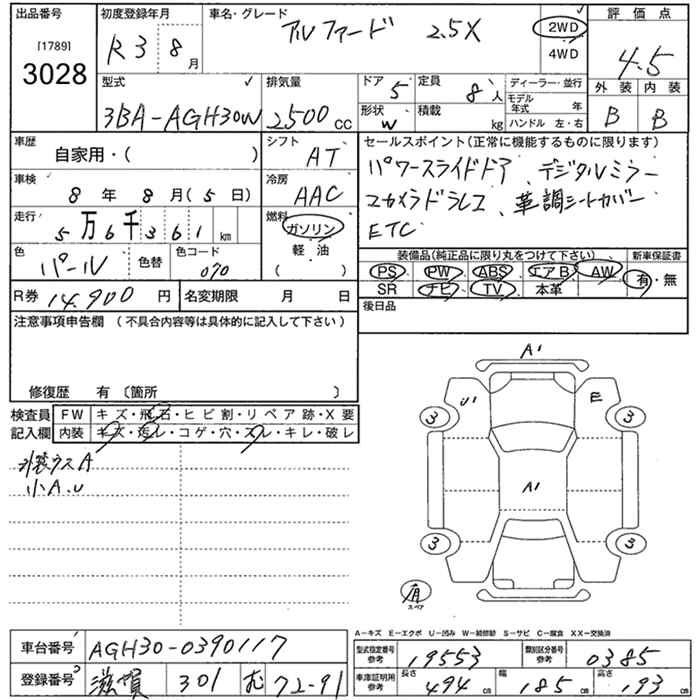 出品番号 初度登録年月 車名・グレード 評価点
[1789] 3028 R3 8月 アルファード 2.5X 2WD 4WD 4.5
型式 排気量 ドア 定員 ディーラー・並行 外装 内装
3BA-AGH30W 2500cc 5 8人 モデル年式 年 B B
形状 W 積載 kg ハンドル 左・右
車歴 シフト セールスポイント(正常に機能するものに限ります)
自家用・( ) AT パワースライドドア、デジタルミラー
車検 冷房
8年 8月(5日) AAC エカメラドラレコ、革調シートカバー
走行 燃料
5万6千361km ガソリン ETC
軽・油
( )
色 色替 色コード 装備品(純正品に限り丸をつけて下さい) 新車保証書
パール 070 PS PW ABS エアB AW 有・無
R券 14,900円 名変期限 月 日 SR ナビ TV 本革
注意事項申告欄 (不具合内容等は具体的に記入して下さい) 後日品
修復歴 有〔箇所 〕
検査員 FW キズ・飛石・ヒビ割・リペア跡・X要
記入欄 内装 キズ・汚レ・コゲ・穴・スレ・キレ・破レ
外装ウスA
小A.U
A1
U1 E
3 3
A1
3 3
有 スペア
A-キズ E-エクボ U-凹み W-補修跡 S-サビ C-腐食 XX-交換済
車台番号 AGH30-0390117 型式指定番号 参考 19553 類別区分番号 参考 0385
登録番号 滋賀 301 む 72-91 車庫証明用 参考 長さ 494cm 幅 185cm 高さ 193cm